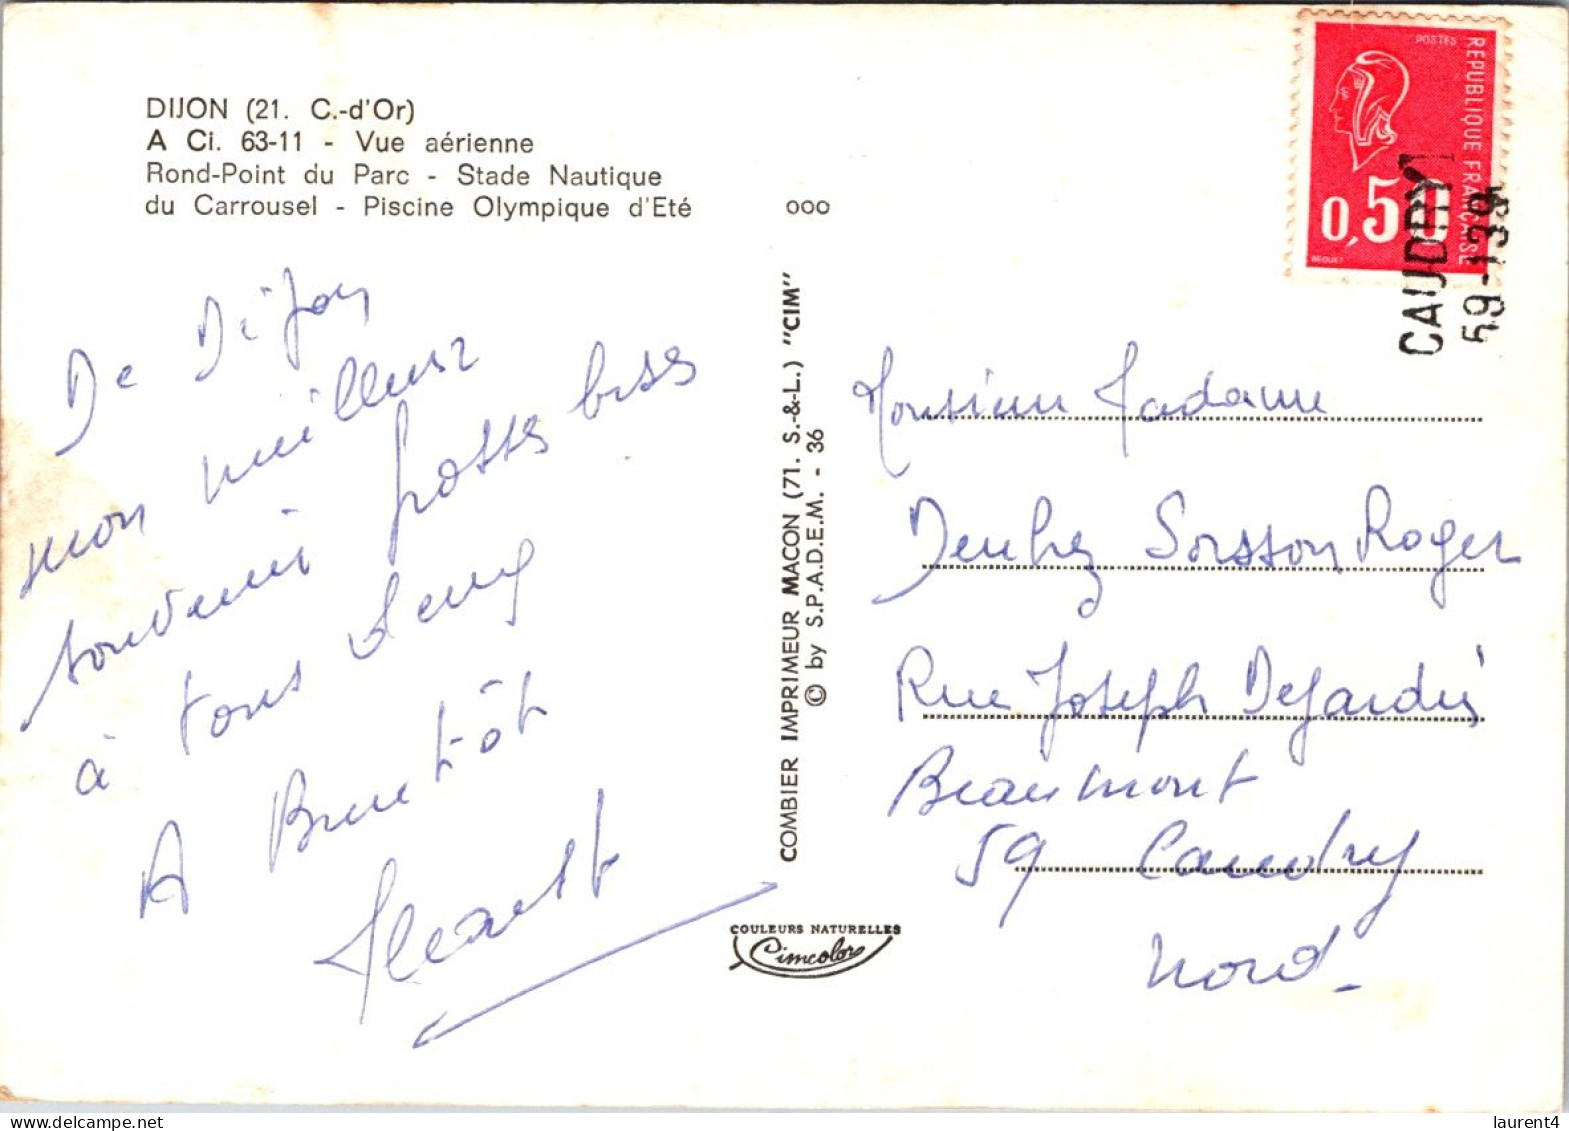 DIJON (21. C.-d'Or)
A Ci. 63-11 - Vue aérienne
Rond-Point du Parc - Stade Nautique
du Carrousel - Piscine Olympique d'Eté
ooo
De Dijon
mon meilleur
souvenir grosses bises
à tous deux
A Bientôt
COMBIER IMPRIMEUR MACON (71. S.-&-L.) "CIM"
© by S.P.A.D.E.M. - 36
COULEURS NATURELLES
Cimcolor
POSTES
REPUBLIQUE FRANÇAISE
0,50
BEQUET
CAUDRY 1
59-139
Monsieur Madame
Roger
Rue Joseph Dejardin
Beaumont
59 Caudry
Nord.
laurent4